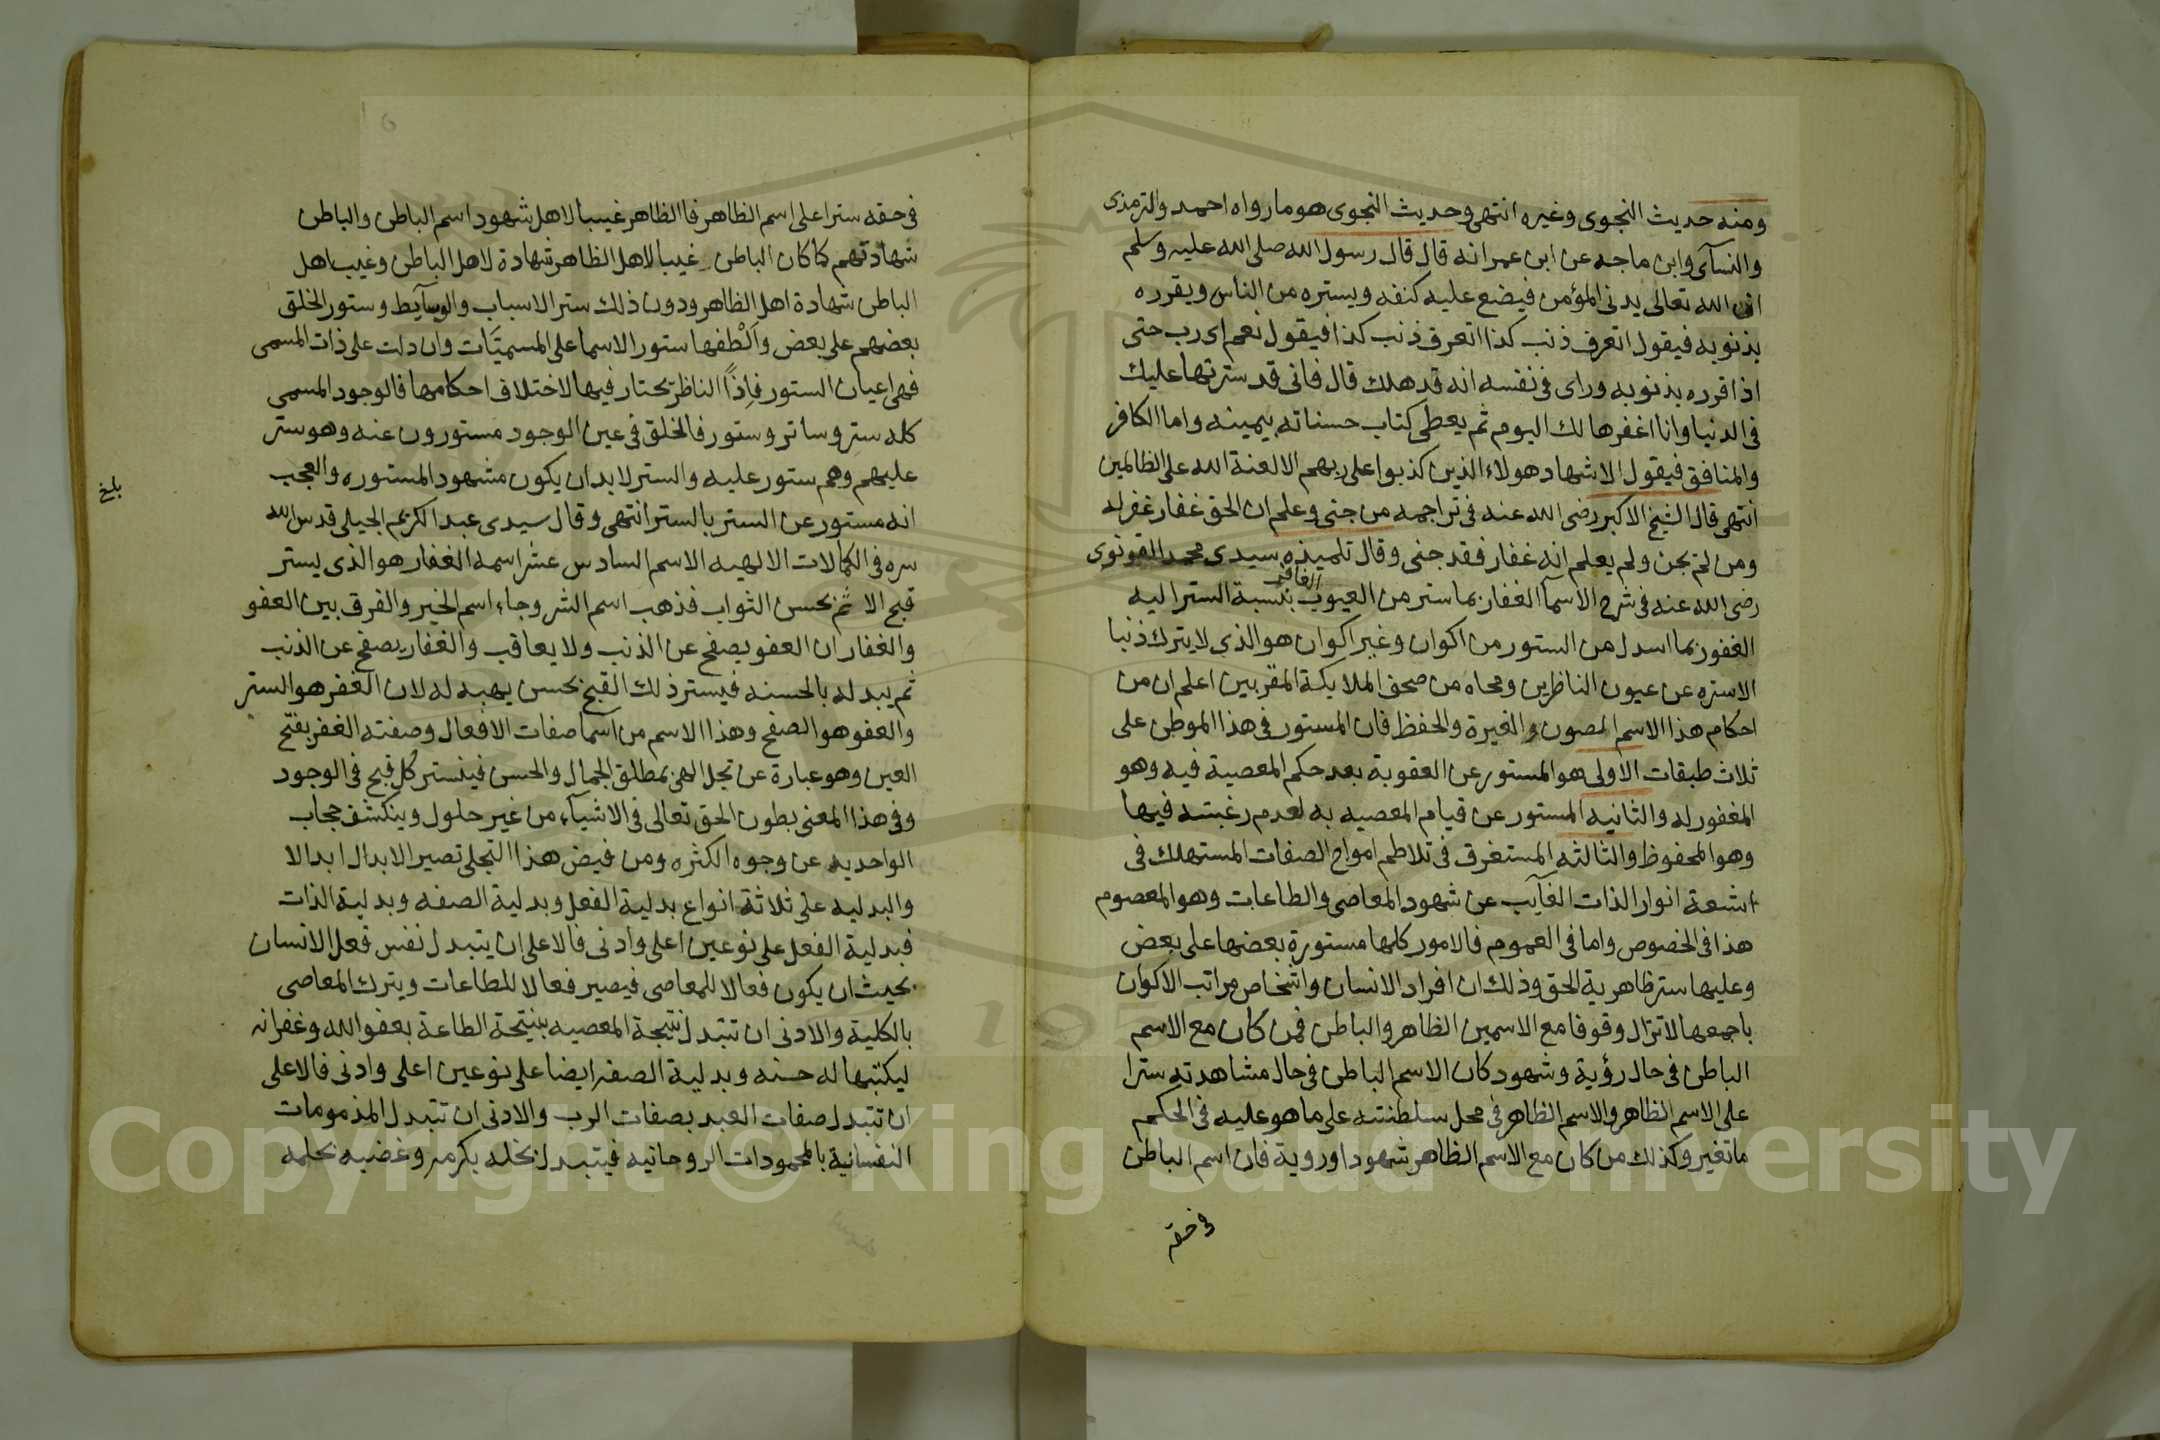 ومنه حديث النجوى وغيره انتهى وحديث النجوى هو مارواه احمد والترمذى
والنسآى وابن ماجه عن ابن عمر انه قال قال رسول الله صلى الله عليه وسلم
ان الله تعالى يدنى المؤمن فيضع عليه كنفه ويستره من الناس ويقرره
بذنوبه فيقول اتعرف ذنب كذا اتعرف ذنب كذا فيقول نعم اى رب حتى
اذا قرره بذنوبه وراى فى نفسه انه قد هلك قال فانى قد سترتها عليك
فى الدنيا وانا اغفرها لك اليوم ثم يعطى كتاب حسناته بيمينه واما الكافر
والمنافق فيقول الاشهاد هولاء الذين كذبوا على ربهم الا لعنة الله على الظالمين
انتهى قال الشيخ الاكبر رضى الله عنه فى تراجمه من جنى وعلم ان الحق غفار غفر له
ومن لم يجن ولم يعلم انه غفار فقد جنى وقال تلميذه سيدى محمد القونوى
رضى الله عنه فى شرح الاسمآ الغفار بما ستر من العيوب الغافر بنسبة الستر اليه
الغفور بما اسدل من الستور من اكوان وغير اكوان هو الذى لا يترك ذنبا
الا ستره عن عيون الناظرين ومحاه من صحف الملايكة المقربين اعلم ان من
احكام هذا الاسم المصون والغيرة والحفظ فان المستور فى هذا الموطن على
ثلاث طبقات الاولى هو المستور عن العقوبة بعد حكم المعصية فيه وهو
المغفور له والثانيه المستور عن قيام المعصيه به لعدم رغبته فيها
وهو المحفوظ والثالثه المستغرق فى تلاطم امواج الصفات المستهلك فى
اشعة انوار الذات الغآيب عن شهود المعاصى والطاعات وهو المعصوم
هذا فى الخصوص واما فى العموم فالامور كلها مستورة بعضها على بعض
وعليها ستر ظاهرية الحق وذلك ان افراد الانسان واشخاص مراتب الاكوان
باجمعها لا تزال وقوفا مع الاسمين الظاهر والباطن فمن كان مع الاسم
الباطن فى حال رؤية وشهود كان الاسم الباطن فى حال مشاهدته سترا
على الاسم الظاهر والاسم الظاهر فى محل سلطنته على ما هو عليه فى الحكم
ما تغير وكذلك من كان مع الاسم الظاهر شهودا وروية فان اسم الباطن
فى حقه
فى حقه سترا على اسم الظاهر فاالظاهر غيبا لاهل شهود اسم الباطن والباطن
شهادتهم كما كان الباطن غيبا لاهل الظاهر شهادة لاهل الباطن وغيب اهل
الباطن شهادة اهل الظاهر ودون ذلك ستر الاسباب والوسآيط وستور الخلق
بعضهم على بعض وَالْطفها ستور الاسما على المسميَّات وان دلت على ذات المسمى
فهى اعيان الستور فاِذًا الناظر يحتار فيها لاختلاف احكامها فالوجود المسمى
كله ستر وساتر وستور فالخلق فى عين الوجود مستورون عنه وهو ستر
عليهم وهم ستور عليه والستر لابد ان يكون مشهود المستوره والعجب
انه مستور عن الستر بالستر انتهى وقال سيدى عبد الكريم الجيلى قدس الله
بلغ
سره فى الكمالات الالهيه الاسم السادس عشر اسمه الغفار هو الذى يستر
قبح الاثم بحسن الثواب فذهب اسم الشر وجاء اسم الخير والفرق بين العفو
والغفار ان العفو يصفح عن الذنب ولا يعاقب والغفار يصفح عن الذنب
ثم يبدله بالحسنه فيستر ذلك القبح بحسن يهبه له لان الغفر هو الستر
والعفو هو الصفح وهذا الاسم من اسما صفات الافعال وصفته الغفر بفتح
الغين وهو عبارة عن تجل الهى بمطلق الجمال والحسن فينستر كُل قبح فى الوجود
وفى هذا المعنى بطون الحق تعالى فى الاشيآء من غير حلول وينكشف حجاب
الواحديه عن وجوه الكثره ومن فيض هذا التجلى تصير الابدال ابدالا
والبدليه على ثلاثة انواع بدلية الفعل وبدلية الصفه وبدلية الذات
فبدلية الفعل على نوعين اعلى وادنى فالاعلى ان يتبدل نفس فعل الانسان
بحيث ان يكون فعالا للمعاصى فيصير فعالا للطاعات ويترك المعاصى
بالكلية والادنى ان تتبدل نتيجة المعصيه بنتيجة الطاعة بعفو الله وغفرانه
ليكتبها له حسنه وبدلية الصفه ايضا على نوعين اعلى وادنى فالاعلى
ان تتبدل صفات العبد بصفات الرب والادنى ان تتبدل المذمومات
النفسانية بالمحمودات الروحانيه فيتبدل بخله بكرمه وغضبه بحلمه
Copyright © King Saud University